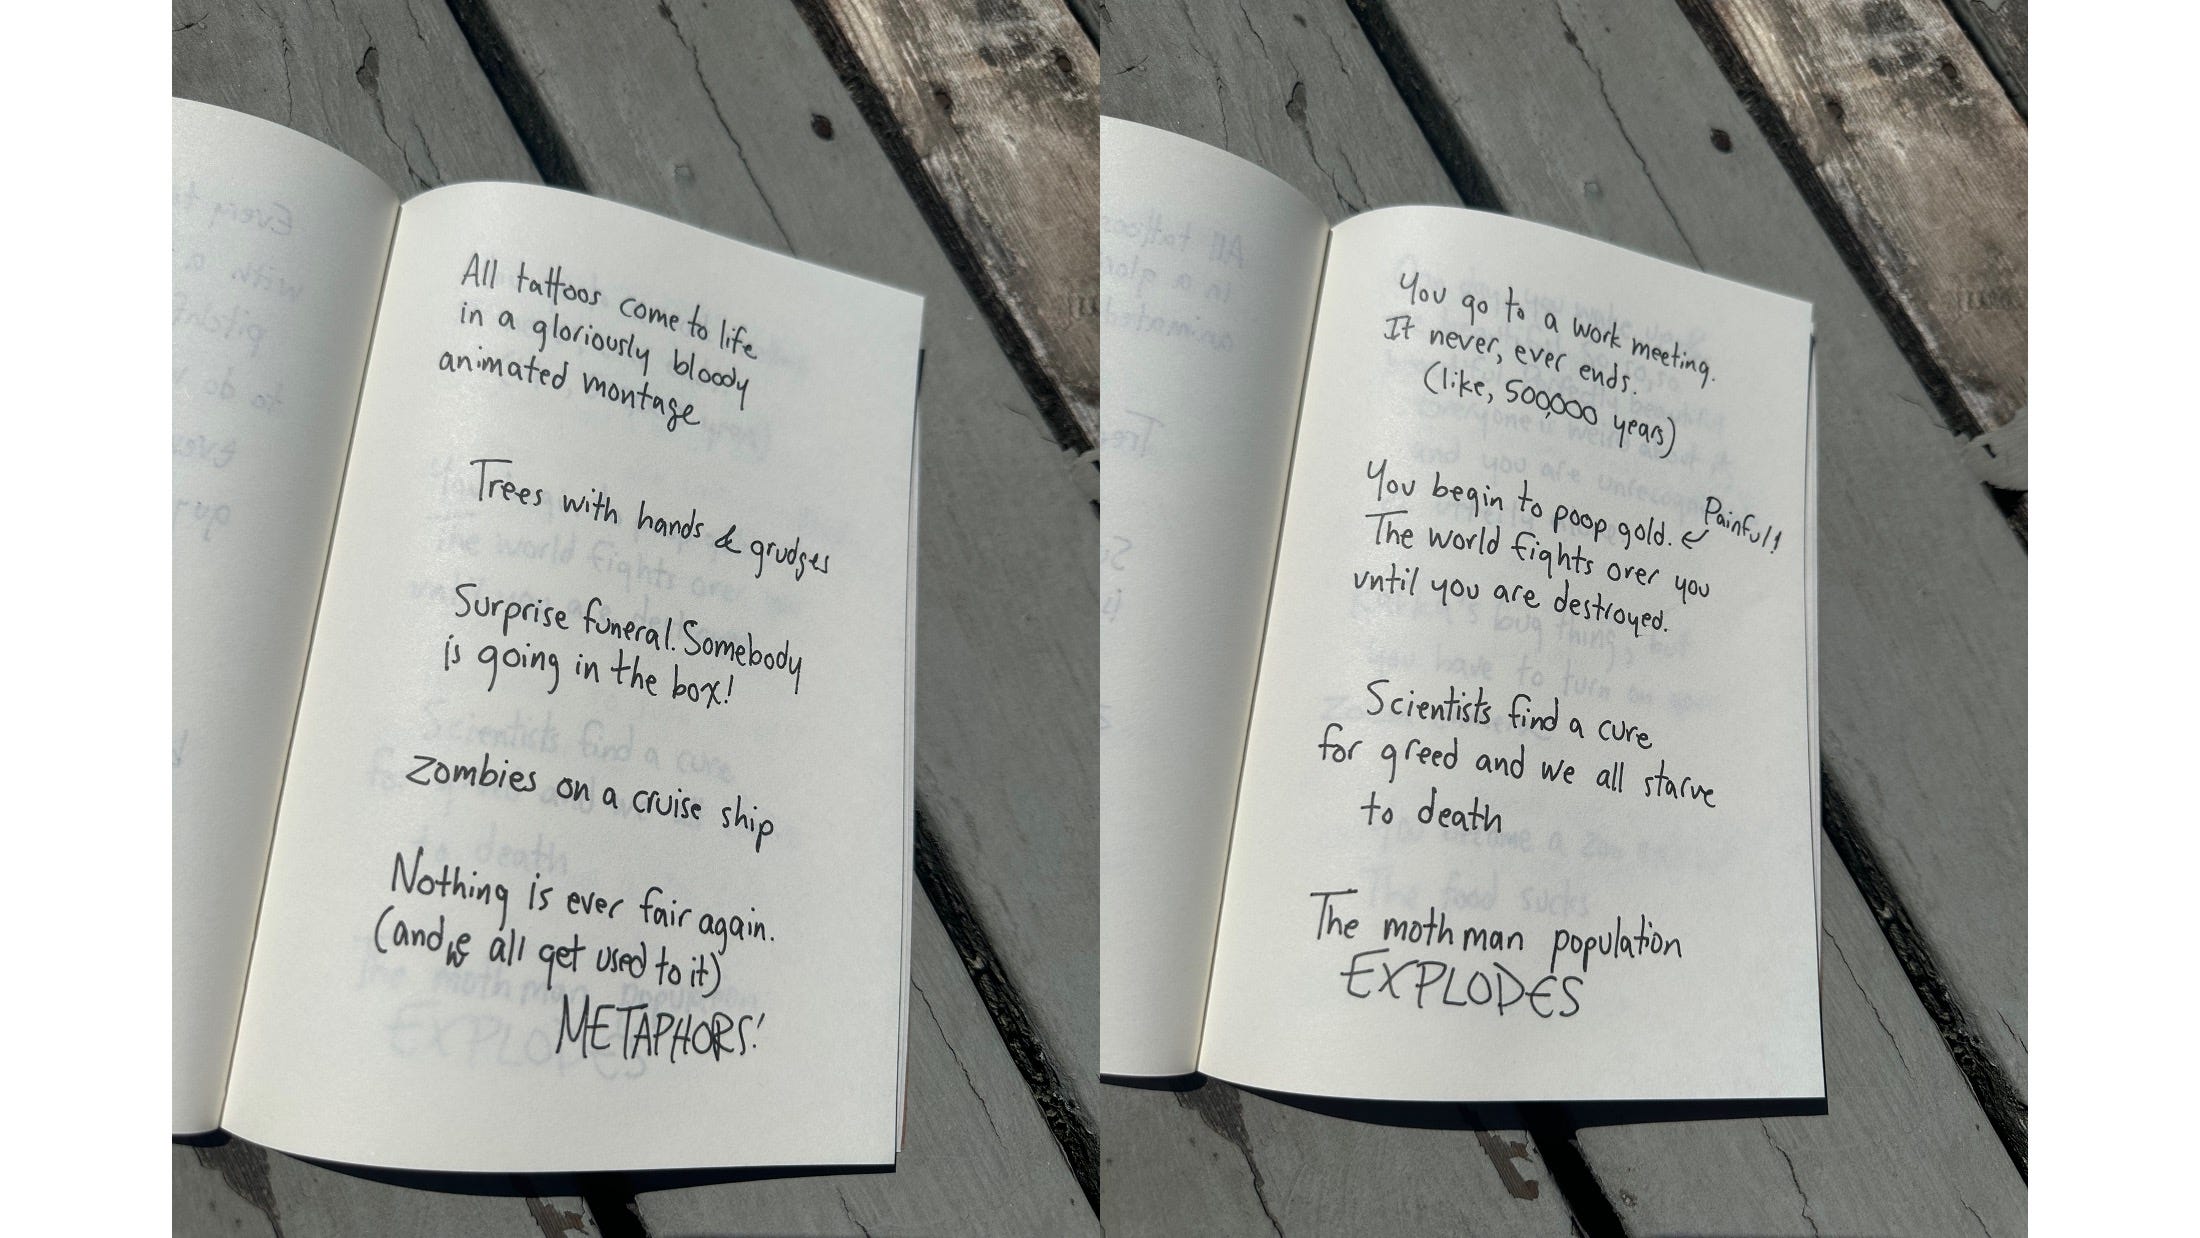 All tattoos come to life
in a gloriously bloody
animated montage
Trees with hands & grudges
Surprise funeral. Somebody
is going in the box!
Zombies on a cruise ship
Nothing is ever fair again.
(and we all get used to it)
METAPHORS!
You go to a work meeting.
It never, ever ends.
(like, 500,000 years)
You begin to poop gold. ← Painful!
The world fights over you
until you are destroyed.
Scientists find a cure
for greed and we all starve
to death
The moth man population
EXPLODES